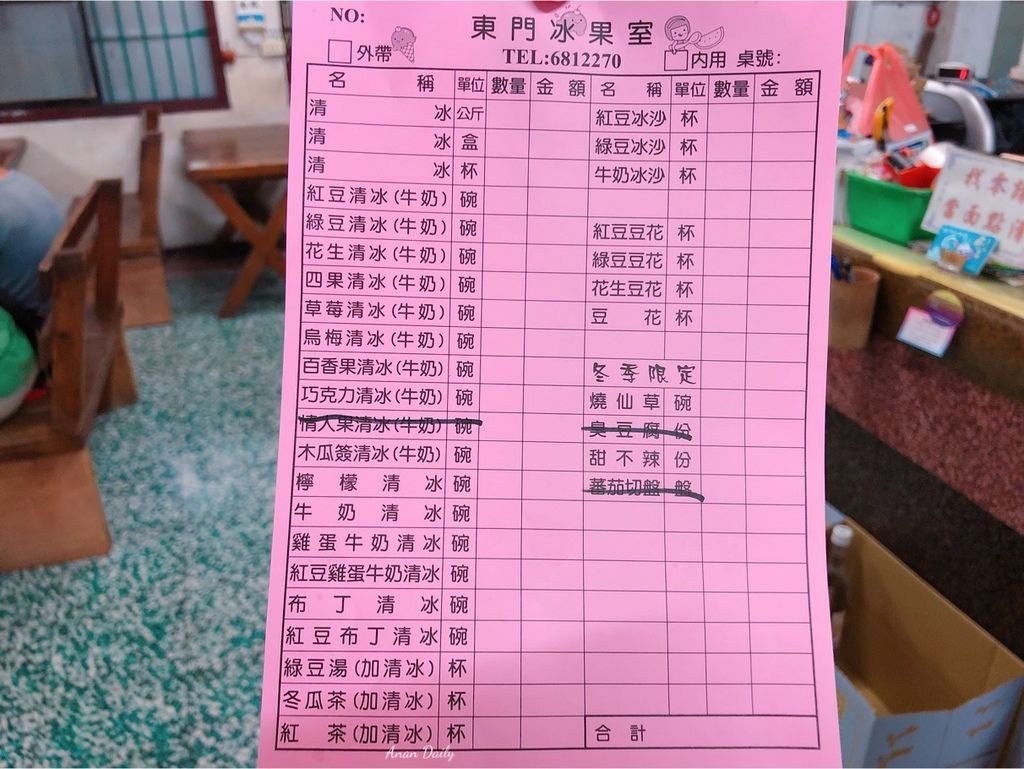 NO:
東門冰果室
□外帶 TEL:6812270 □內用 桌號:
名稱 單位 數量 金額 名稱 單位 數量 金額
清冰 公斤 紅豆冰沙 杯
清冰 盒 綠豆冰沙 杯
清冰 杯 牛奶冰沙 杯
紅豆清冰(牛奶) 碗
綠豆清冰(牛奶) 碗 紅豆豆花 杯
花生清冰(牛奶) 碗 綠豆豆花 杯
四果清冰(牛奶) 碗 花生豆花 杯
草莓清冰(牛奶) 碗 豆花 杯
烏梅清冰(牛奶) 碗
百香果清冰(牛奶) 碗 冬季限定
巧克力清冰(牛奶) 碗 燒仙草 碗
情人果清冰(牛奶) 碗 臭豆腐 份
木瓜簽清冰(牛奶) 碗 甜不辣 份
檸檬清冰 碗 蕃茄切盤 盤
牛奶清冰 碗
雞蛋牛奶清冰 碗
紅豆雞蛋牛奶清冰 碗
布丁清冰 碗
紅豆布丁清冰 碗
綠豆湯(加清冰) 杯
冬瓜茶(加清冰) 杯
紅茶(加清冰) 杯 合計
Anan Daily
找零
當面點